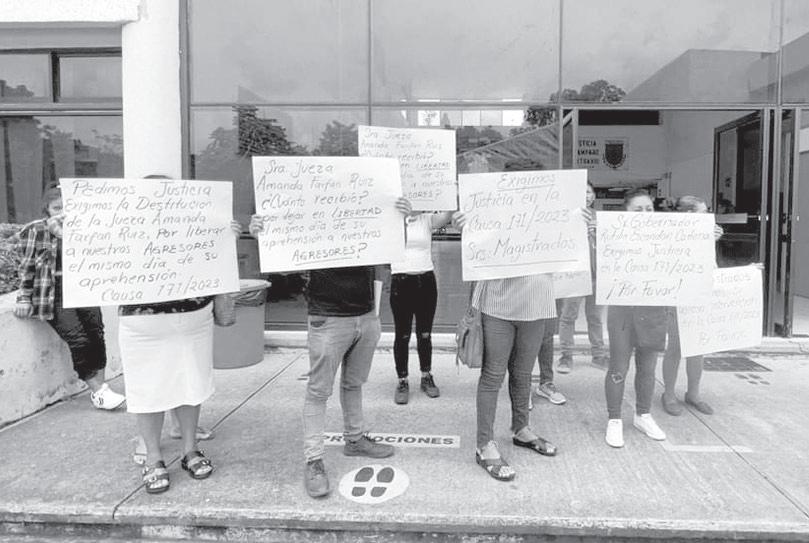 Pedimos Justicia
Exigimos la Destitución
de la Jueza Amanda
Farfan Ruiz, Por liberar
a nuestros AGRESORES
el mismo día de su
aprehensión.
Causa 171/2023
Sra. Jueza
Amanda Farfan Ruiz
¿Cuánto recibió?
por dejar en LIBERTAD
el mismo día de su
aprehensión a nuestros
AGRESORES?
Sra Jueza
Amanda Farfan Ruiz
¿Cuánto recibió?
en LIBERTAD
de su
a nuestros
RESORES?
Exigimos
Justicia en la
Causa 171/2023
Srs. Magistrados.
Sr. Gobernador
Rutilio Escandon Cadenas
Exigimos Justicia
en la Causa 171/2023
¡Por Favor!
Por Favor
PROMOCIONES